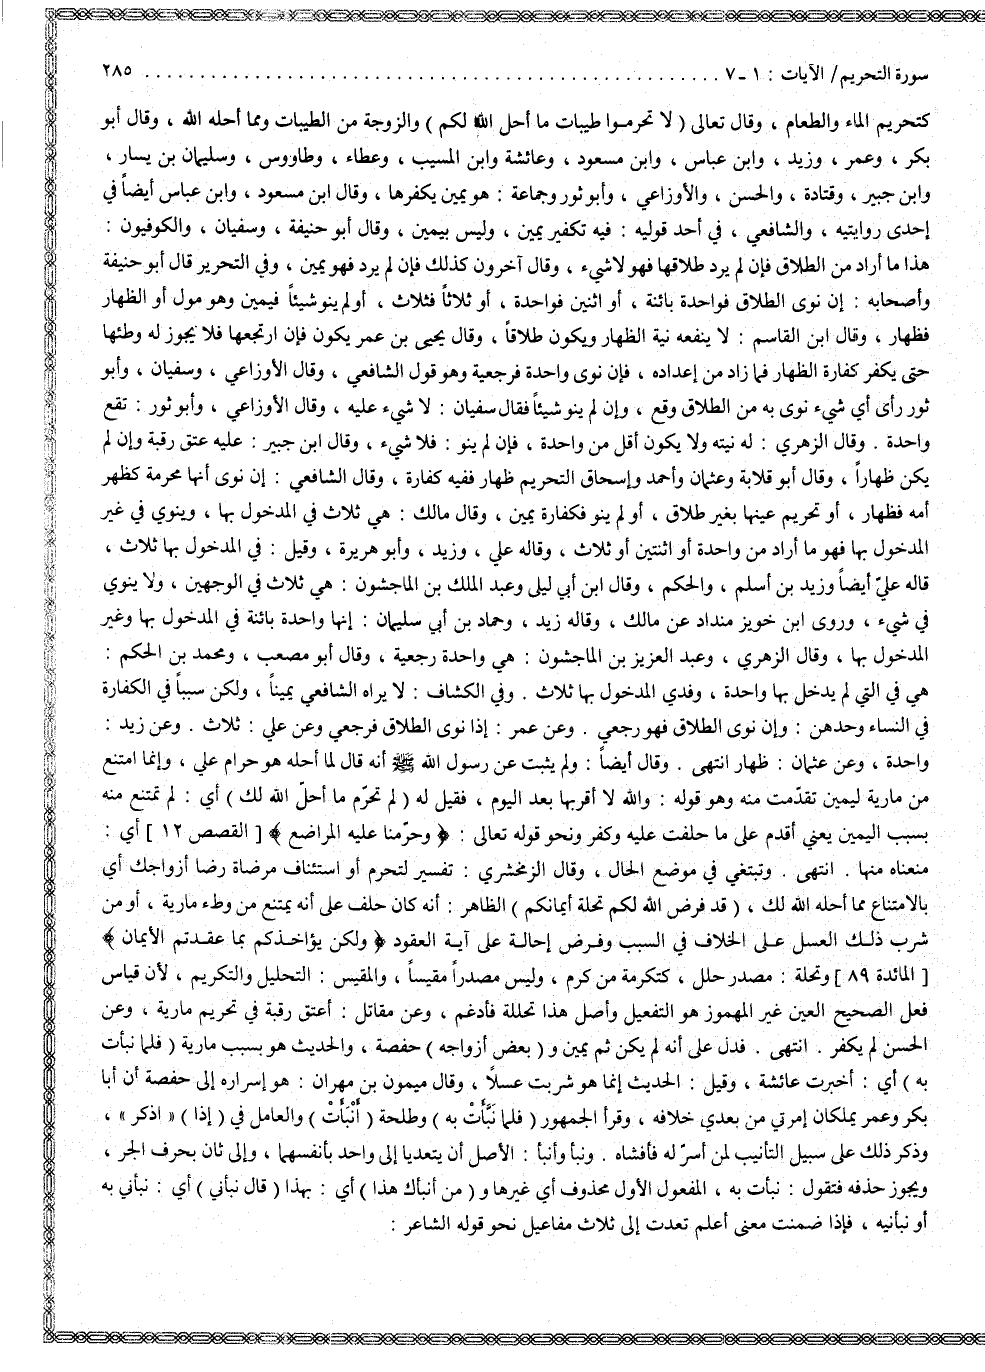 سورة التحريم/ الآيات : ١ ـ ٧ . . . . . . . . . . . . . . . . . . . . . . . . . . . . . . . . . . . . . . . . ٢٨٥
كتحريم الماء والطعام ، وقال تعالى ( لا تحرمـوا طيبات ما أحل الله لكم ) والزوجة من الطيبات ومما أحله الله ، وقال أبو
بكر ، وعمر ، وزيد ، وابن عباس ، وابن مسعود ، وعائشة وابن المسيب ، وعطاء ، وطاووس ، وسليمان بن يسار ،
وابن جبير ، وقتادة ، والحسن ، والأوزاعي ، وأبو ثور وجماعة : هو يمين يكفرها ، وقال ابن مسعود ، وابن عباس أيضاً في
إحدى روايتيه ، والشافعي ، في أحد قوليه : فيه تكفير يمين ، وليس بيمين ، وقال أبو حنيفة ، وسفيان ، والكوفيون :
هذا ما أراد من الطلاق فإن لم يرد طلاقها فهو لا شيء ، وقال آخرون كذلك فإن لم يرد فهو يمين ، وفي التحرير قال أبو حنيفة
وأصحابه : إن نوى الطلاق فواحدة بائنة ، أو اثنين فواحدة ، أو ثلاثاً فثلاث ، أو لم ينو شيئاً فيمين وهو مول أو الظهار
فظهار ، وقال ابن القاسم : لا ينفعه نية الظهار ويكون طلاقاً ، وقال يحيى بن عمر يكون فإن ارتجعها فلا يجوز له وطئها
حتى يكفر كفارة الظهار فما زاد من إعداده ، فإن نوى واحدة فرجعية وهو قول الشافعي ، وقال الأوزاعي ، وسفيان ، وأبو
ثور رأى أي شيء نوى به من الطلاق وقع ، وإن لم ينو شيئاً فقال سفيان : لا شيء عليه ، وقال الأوزاعي ، وأبو ثور : تقع
واحدة . وقال الزهري : له نيته ولا يكون أقل من واحدة ، فإن لم ينو : فلا شيء ، وقال ابن جبير : عليه عتق رقبة وإن لم
يكن ظهاراً ، وقال أبو قلابة وعثمان وأحمد وإسحاق التحريم ظهار ففيه كفارة ، وقال الشافعي : إن نوى أنها محرمة كظهر
أمه فظهار ، أو تحريم عينها بغير طلاق ، أو لم ينو فكفارة يمين ، وقال مالك : هي ثلاث في المدخول بها ، وينوي في غير
المدخول بها فهو ما أراد من واحدة أو اثنتين أو ثلاث ، وقاله علي ، وزيد ، وأبو هريرة ، وقيل : في المدخول بها ثلاث ،
قاله عليّ أيضاً وزيد بن أسلم ، والحكم ، وقال ابن أبي ليلى وعبد الملك بن الماجشون : هي ثلاث في الوجهين ، ولا ينوي
في شيء ، وروى ابن خويز منداد عن مالك ، وقاله زيد ، وحماد بن أبي سليمان : إنها واحدة بائنة في المدخول بها وغير
المدخول بها ، وقال الزهري ، وعبد العزيز بن الماجشون : هي واحدة رجعية ، وقال أبو مصعب ، ومحمد بن الحكم :
هي في التي لم يدخل بها واحدة ، وفدي المدخول بها ثلاث . وفي الكشاف : لا يراه الشافعي يميناً ، ولكن سبباً في الكفارة
في النساء وحدهن : وإن نوى الطلاق فهو رجعي . وعن عمر : إذا نوى الطلاق فرجعي وعن علي : ثلاث . وعن زيد :
واحدة ، وعن عثمان : ظهار انتهى . وقال أيضاً : ولم يثبت عن رسول الله ﷺ أنه قال لما أحله هو حرام علي ، وإنما امتنع
من مارية ليمين تقدّمت منه وهو قوله : والله لا أقربها بعد اليوم ، فقيل له ( لم تحرّم ما أحلّ الله لك ) أي : لم تمتنع منه
بسبب اليمين يعني أقدم على ما حلفت عليه وكفر ونحو قوله تعالى : ﴿ وحرّمنا عليه المراضع ﴾ [ القصص ١٢ ] أي :
منعناه منها . انتهى . وتبتغي في موضع الحال ، وقال الزمخشري : تفسير لتحرم أو استئناف مرضاة رضا أزواجك أي
بالامتناع مما أحله الله لك ، ( قد فرض الله لكم تحلة أيمانكم ) الظاهر : أنه كان حلف على أنه يمتنع من وطء مارية ، أو من
شرب ذلـك العسل عـلى الخلاف في السبب وفـرض إحالـة على آيـة العقود ﴿ ولكن يؤاخـذكم بما عقـدتم الأيمان ﴾
[ المائدة ٨٩ ] وتحلة : مصدر حلل ، كتكرمة من كرم ، وليس مصدراً مقيساً ، والمقيس : التحليل والتكريم ، لأن قياس
فعل الصحيح العين غير المهموز هو التفعيل وأصل هذا تحللة فأدغم ، وعن مقاتل : أعتق رقبة في تحريم مارية ، وعن
الحسن لم يكفر . انتهى . فدل على أنه لم يكن ثم يمين و ( بعض أزواجه ) حفصة ، والحديث هو بسبب مارية ( فلما نبأت
به ) أي : أخبرت عائشة ، وقيل : الحديث إنما هو شربت عسلًا ، وقال ميمون بن مهران : هو إسراره إلى حفصة أن أبا
بكر وعمر يملكان إمرتي من بعدي خلافه ، وقرأ الجمهور ( فلما نَبَّأَتْ به ) وطلحة ( أَنْبَأَتْ ) والعامل في ( إذا ) « اذكر » ،
وذكر ذلك على سبيل التأنيب لمن أسرّ له فأفشاه . ونبأ وأنبأ : الأصل أن يتعديا إلى واحد بأنفسهما ، وإلى ثان بحرف الجر ،
ويجوز حذفه فتقول : نبأت به ، المفعول الأول محذوف أي غيرها و ( من أنبأك هذا ) أي : بهذا ( قال نبأني ) أي : نبأني به
أو نبأنيه ، فإذا ضمنت معنى أعلم تعدت إلى ثلاث مفاعيل نحو قوله الشاعر :